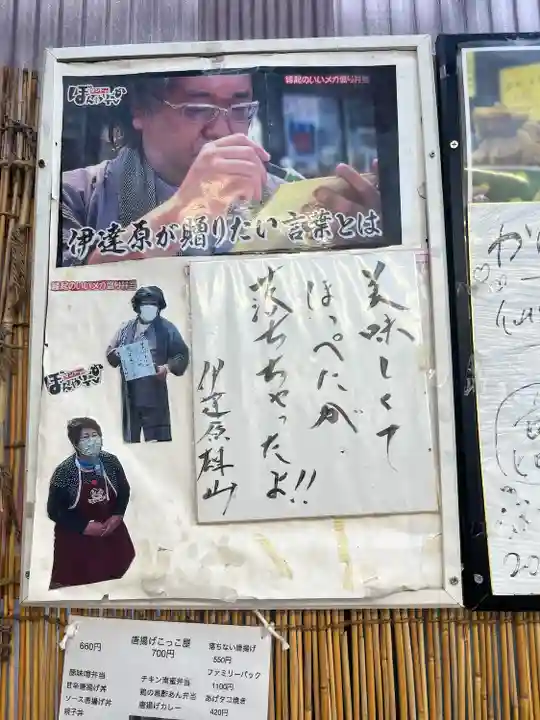 縁起のいいメガ盛り弁当
伊達原が贈りたい言葉とは
縁起のいいメガ盛り弁当
美味しくて
ほっぺたが
落ちちゃったよ!!
伊達原雄山
660円
唐揚げこっこ屋
700円
落ちない唐揚げ
550円
ファミリーパック
1100円
あげタコ焼き
420円
豚味噌弁当
甘辛唐揚げ丼
ソース唐揚げ丼
親子丼
チキン南蛮弁当
鶏の黒酢あん弁当
唐揚げカレー